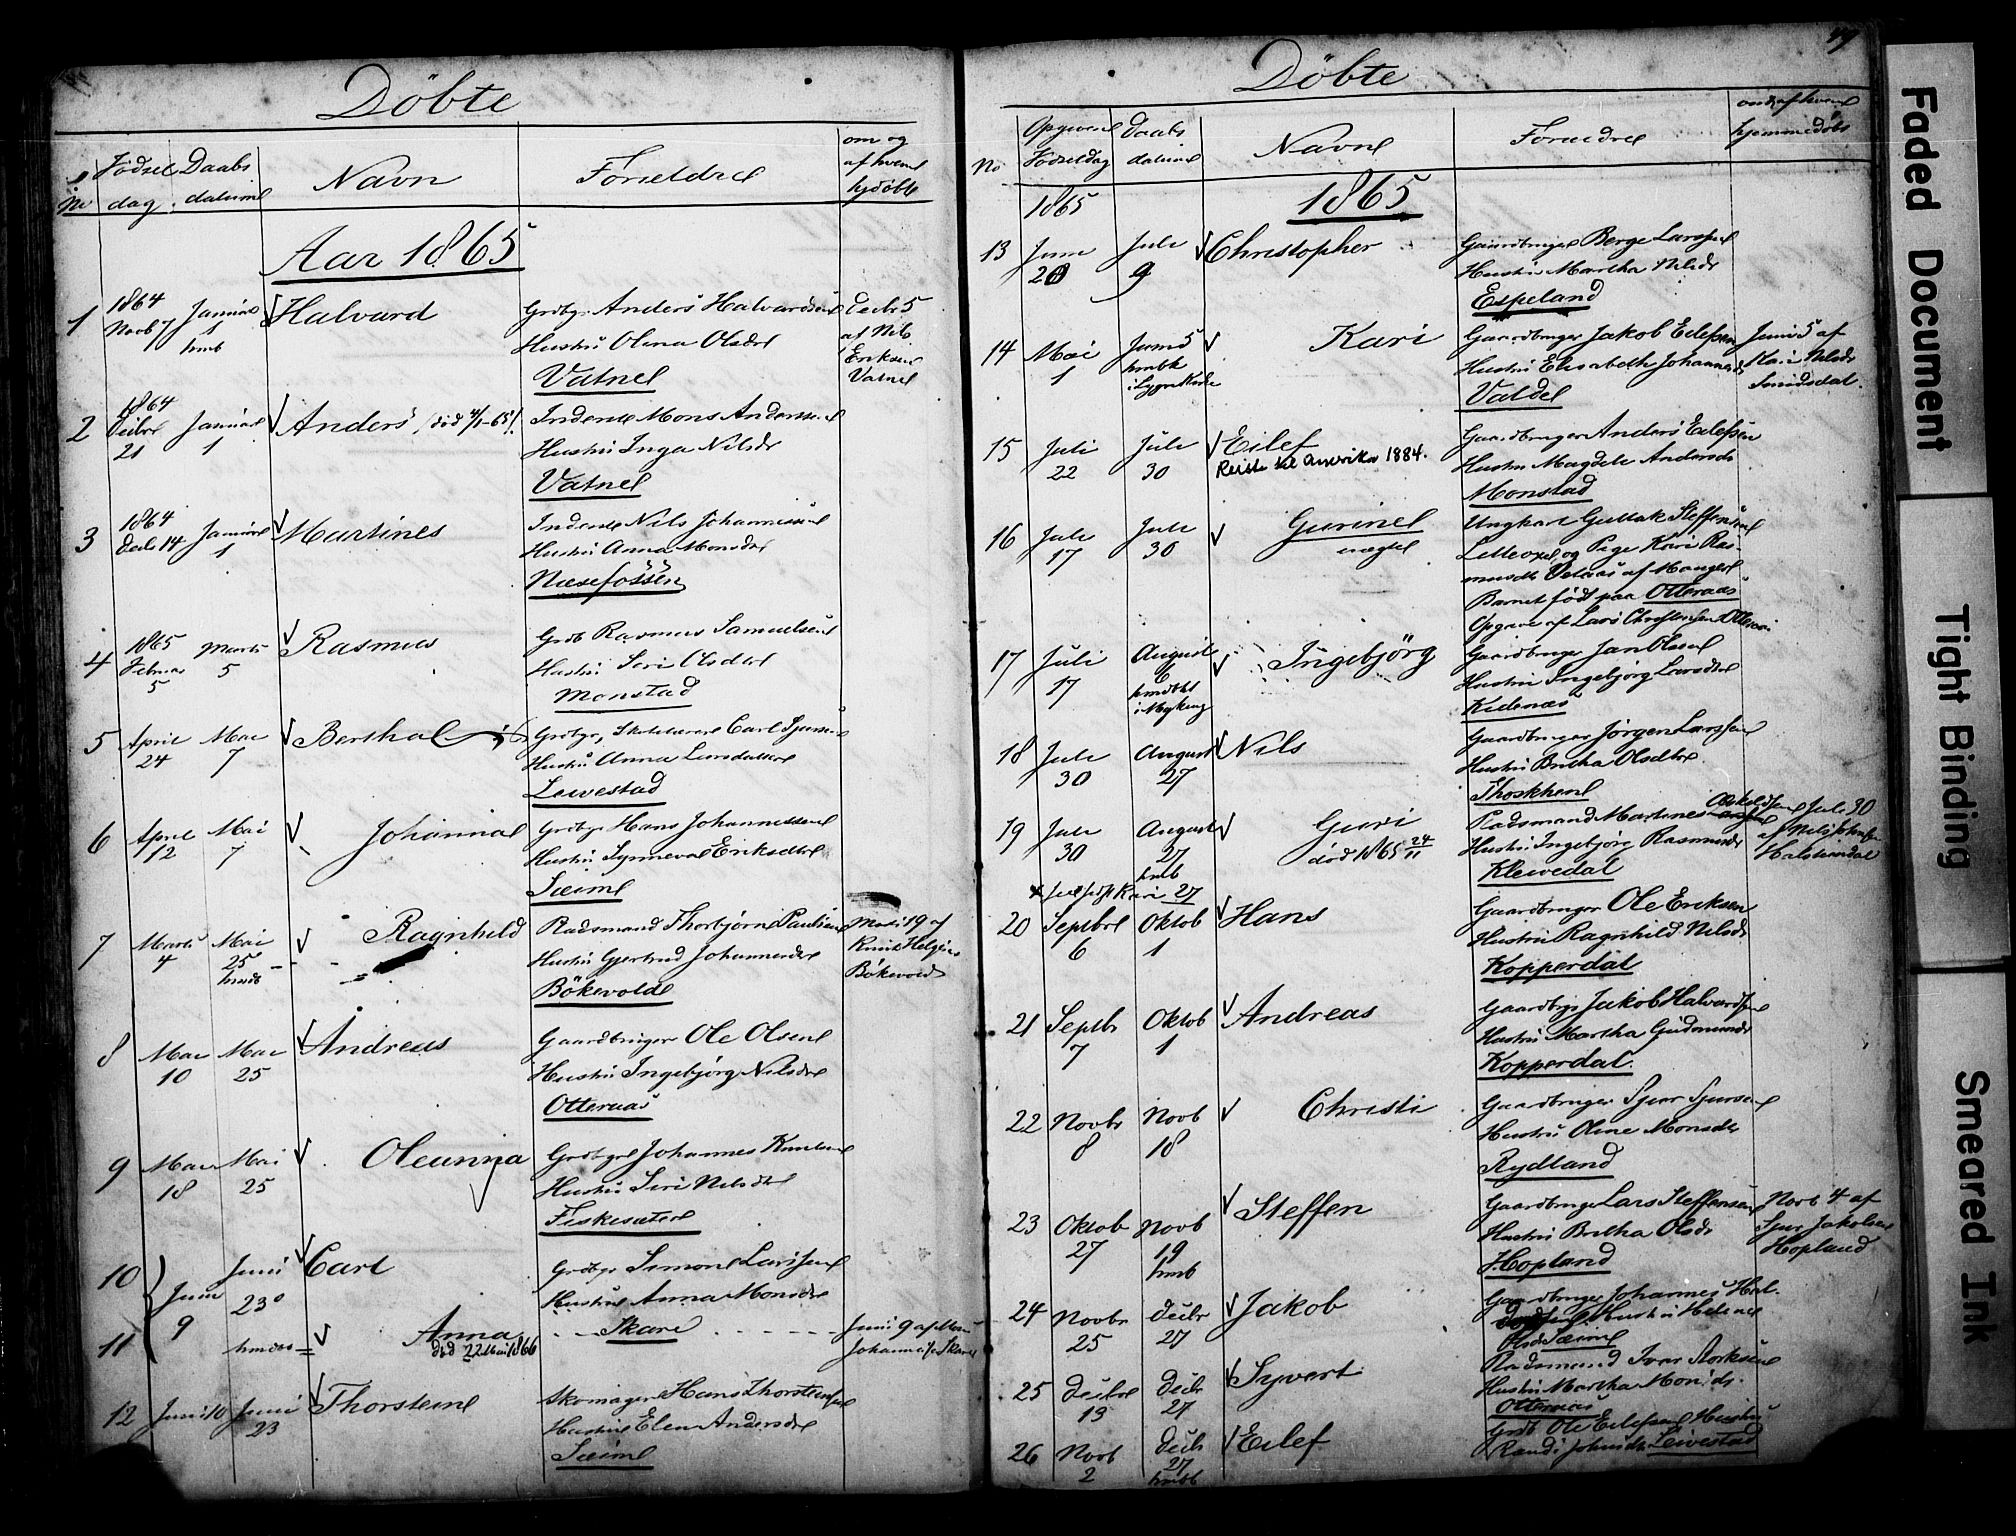 Döbte
No
Födsel dag
Daabs datum
Navn
Forældre
om og af hvem hjdöbt
Aar 1865
1
1864 Novb 7
Januar 1 hmb
Halvard
Grdbgr Anders Halvardsen
Hustru Olina Olsdr
Vatne
Decbr 5
af Nils
Eriksen
Vatne
2
1864 Decbr 21
Januar 1
Anders (död 4/1-65)
Inderst Mons Andersen
Hustru Inga Nilsdr
Vatne
3
1864 Decb 14
Januar 1
Martines
Inderst Nils Johannesen
Hustru Anna Monsdr
Næsefossen
4
1865 Februar 5
Marts 5
Rasmus
Grdb Rasmus Samuelsen
Hustru Siri Olsdtr
Monstad
5
April 24
Mai 7
Bertha
Grdbgr, Skolelærer Carl Sjursen
Hustru Anna Larsdatter
Leivestad
6
April 12
Mai 7
Johanna
Grdbgr Hans Johannessen
Hustru Synneva Eriksdtr
Sæim
7
Marts 4
Mai 25 hmdb
Ragnhild
Pladsmand Thorbjörn Paulsen
Hustru Gjertrud Johannesdr
Bökevold
Marts 19 af
Knut Helges
Bökevold
8
Mai 10
Mai 25
Andreas
Gaardbruger Ole Olsen
Hustru Ingebjörg Nilsdr
Otteraas
9
Mai 18
Mai 25
Oleanna
Grdbgr Johannes Knutsen
Hustru Siri Nilsdtr
Fiskesæter
10
Juni 9
Juni 23
Carl
Grdbgr Simon Larssen
Hustru Anna Monsdr
11
hmdb
Anna
död 22 Mai 1866
Skare
Juni 9 af
Johannesen Skare
12
Juni 10
Juni 23
Thorstein
Skomager Hans Thorsteinsen
Hustru Elen Andersdr
Sæim
Döbte
49
No
Opgiven Födseldag
Daabs datum
Navn
Forældre
om og af hvem hjemmedöbt
1865
1865
13
Juni 20
Juli 9
Christopher
Gaardbruger Berge Larssen
Hustru Martha Nilsdr
Espeland
14
Mai 1
Juni 5 hmbt i Lygre Kirke
Kari
Gaardbruger Jakob Eilefsen
Hustru Elisabeth Johannesdr
Valdel
Juni 5 af
Kari Nilsdr
Smidsdal
15
Juli 22
Juli 30
Eilef
Reiste til Amerika 1884.
Gaardbruger Anders Eilefsen
Hustru Magdele Andersdr
Monstad
16
Juli 17
Juli 30
Gurine
uægte
Ungkarl Gullak Steffensen
Litleoxel, og Pige Kari Ras-
musdtr af Manger
Barnet födt paa Otteraas
Opgave af Lars Christensen Otteraas
17
Juli 17
August 6 hmdbt i Myking
Ingebjörg
Gaardbruger Jan Olsen
Hustru Ingebjörg Larsdtr
Kidenæs
18
Juli 30
August 27
Nils
Gaardbruger Jörgen Larssen
Hustru Britha Olsdtr
19
Juli 30
August 27 hmb
Guri
död 1865 24/11
Pladsmand Martines
Hustru Ingebjörg Rasmusdr
Kleivedal
Juli 30
af Nils Johnsen
Halsteindal
20
Septbr 6
Oktob 1
Hans
Gaardbruger Ole Eriksen
Hustru Ragnhild Nilsdr
Kopperdal
21
Septbr 7
Oktob 1
Andreas
Gaardbrgr Jakob Halvardsen
Hustru Martha Gudmundsdr
Kopperdal
22
Novbr 8
Novb 18
Christi
Gaardbruger Sjur Sjursen
Hustru Oline Monsdtr
Rydland
23
Oktob 27
Novb 19 hmb
Steffen
Gaardbruger Lars Steffensen
Hustru Britha Olsdr
Hopland
Novb 4 af
Sjur Jakobsen
Hopland
24
Novbr 25
Decbr 27
Jakob
Gaardbruger Johannes Hal-
Hustru Helene
Olsdr Sæim
25
Decbr 13
Decbr 27
Syvert
Pladsmand Ivar Storksen
Hustru Martha Monsdr
Otteraas
26
Novb 2
Decbr 27 hmdb
Eilef
Grdb Ole Eilefsen Hustru
Randi Johnsdr Leivestad
Faded Document
Tight Binding
Smeared Ink